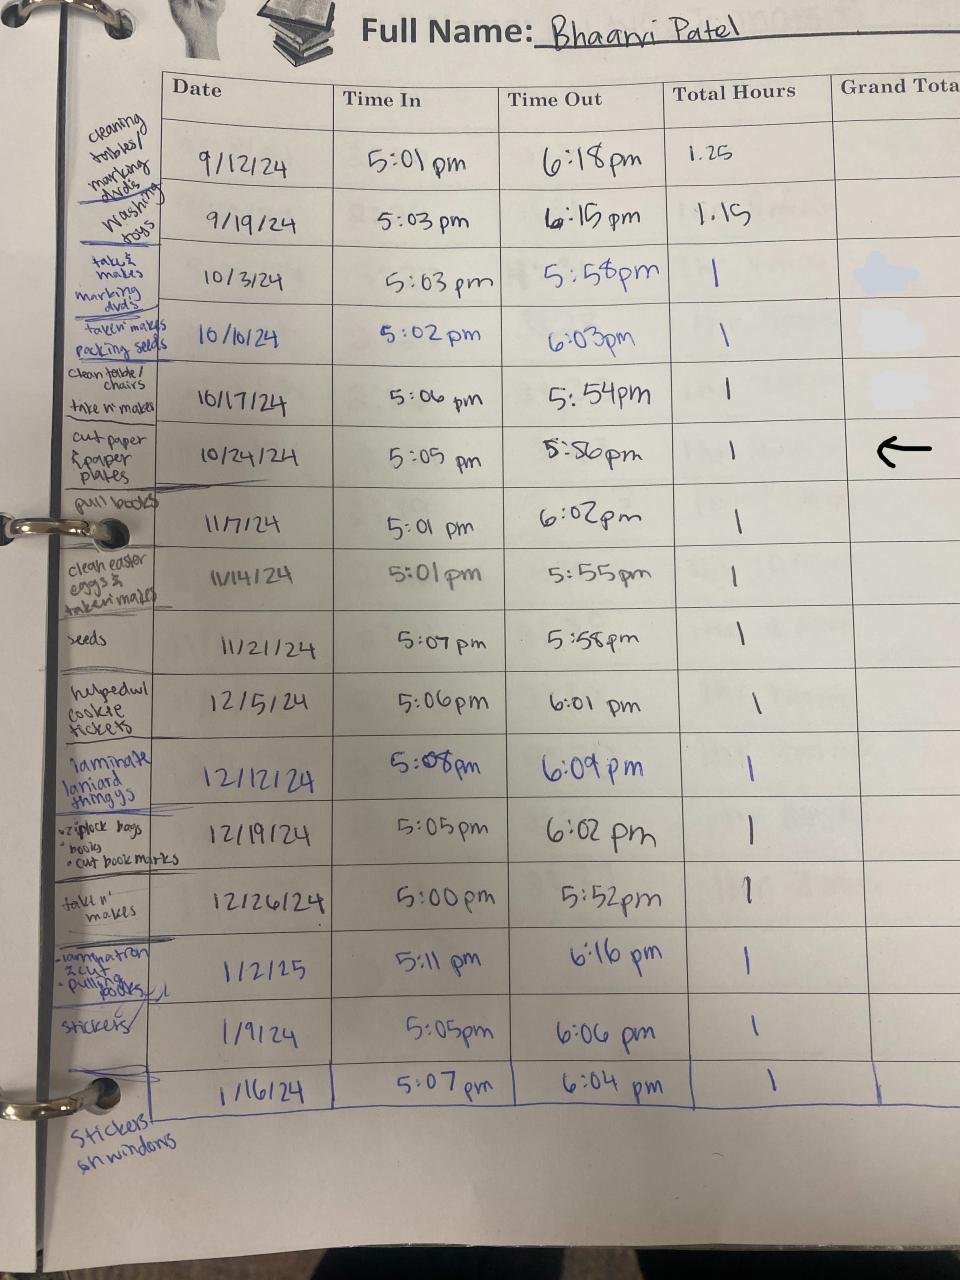 Full Name: Bhaanvi Patel
Date Time In Time Out Total Hours Grand Tota
cleaning
tables/
marking
dvds
9/12/24 5:01 pm 6:18pm 1.25
washing
toys
9/19/24 5:03 pm 6:15 pm 1.15
take &
makes
marking
dvds
10/3/24 5:03 pm 5:58pm 1
take n' makes
packing seeds
10/10/24 5:02 pm 6:03pm 1
clean table/
chairs
take n' makes
10/17/24 5:06 pm 5:54pm 1
cut paper
& paper
plates
10/24/24 5:05 pm 5:56pm 1 ←
pull books
11/7/24 5:01 pm 6:02pm 1
clean easter
eggs &
take n' makes
11/14/24 5:01pm 5:55pm 1
seeds
11/21/24 5:07 pm 5:58pm 1
helped w/
cookie
tickets
12/5/24 5:06pm 6:01 pm 1
laminate
laniard
thinggys
12/12/24 5:08pm 6:09 pm 1
• ziplock bags
• books
• cut book marks
12/19/24 5:05pm 6:02 pm 1
take n'
makes
12/26/24 5:00pm 5:52pm 1
& cut
• pulling
books
1/2/25 5:11 pm 6:16 pm 1
stickers
1/9/24 5:05pm 6:06 pm 1
1/16/24 5:07 pm 6:04 pm 1
stickers
on windows